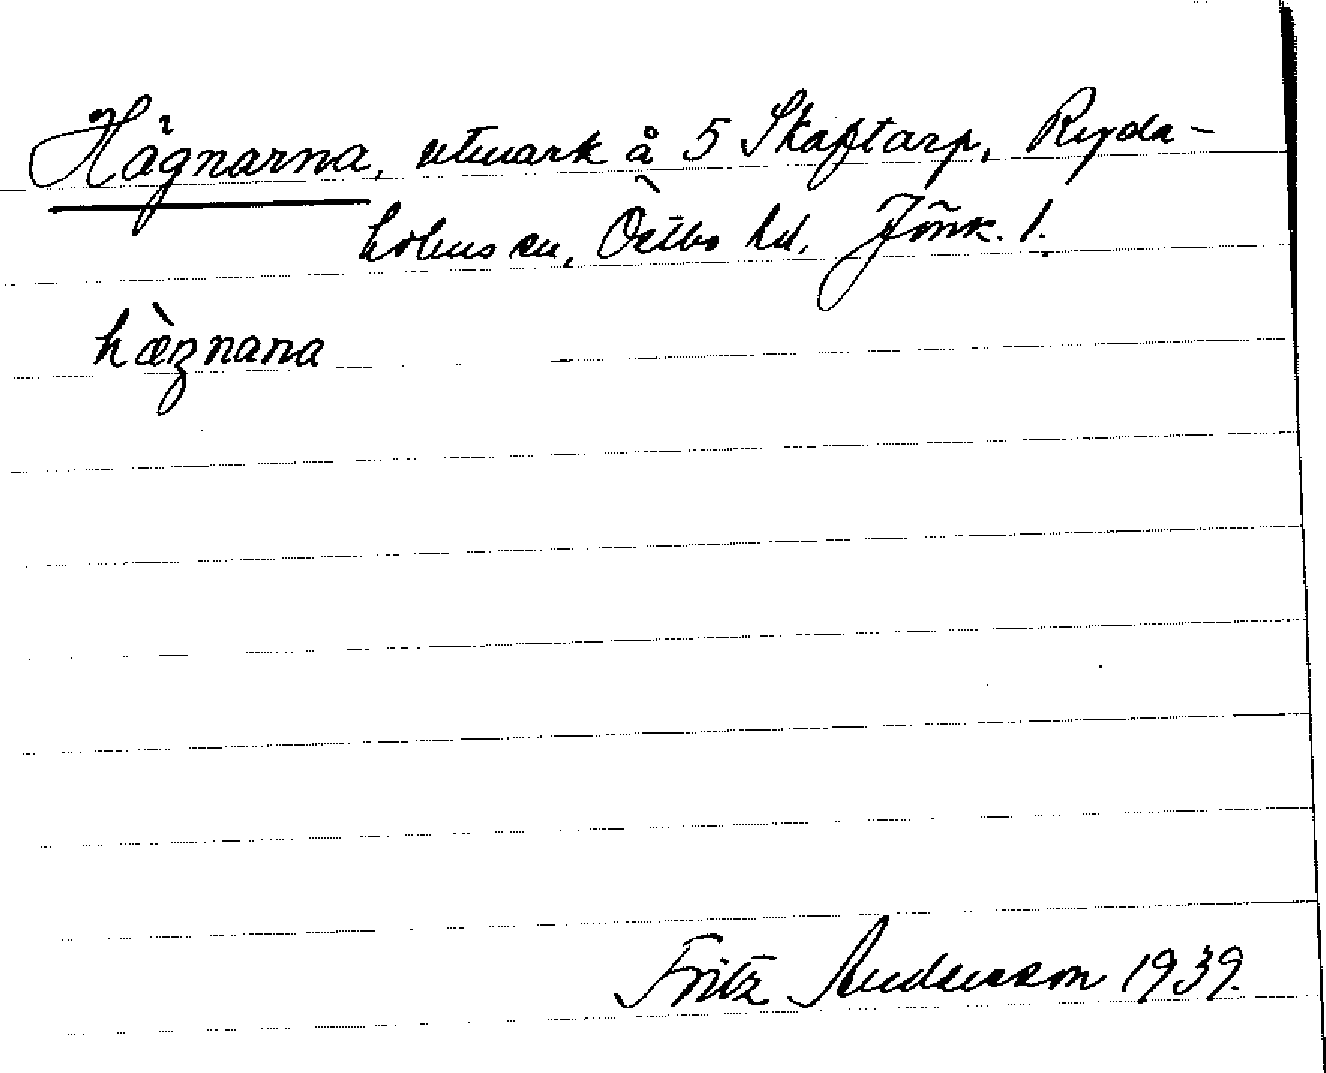 Hägnarna, utmark å 5 Skaftarp, Ryda-
holms sn, Östbo hd, Jönk. l.
hæ̀gnana
Fritz Andersson 1939.